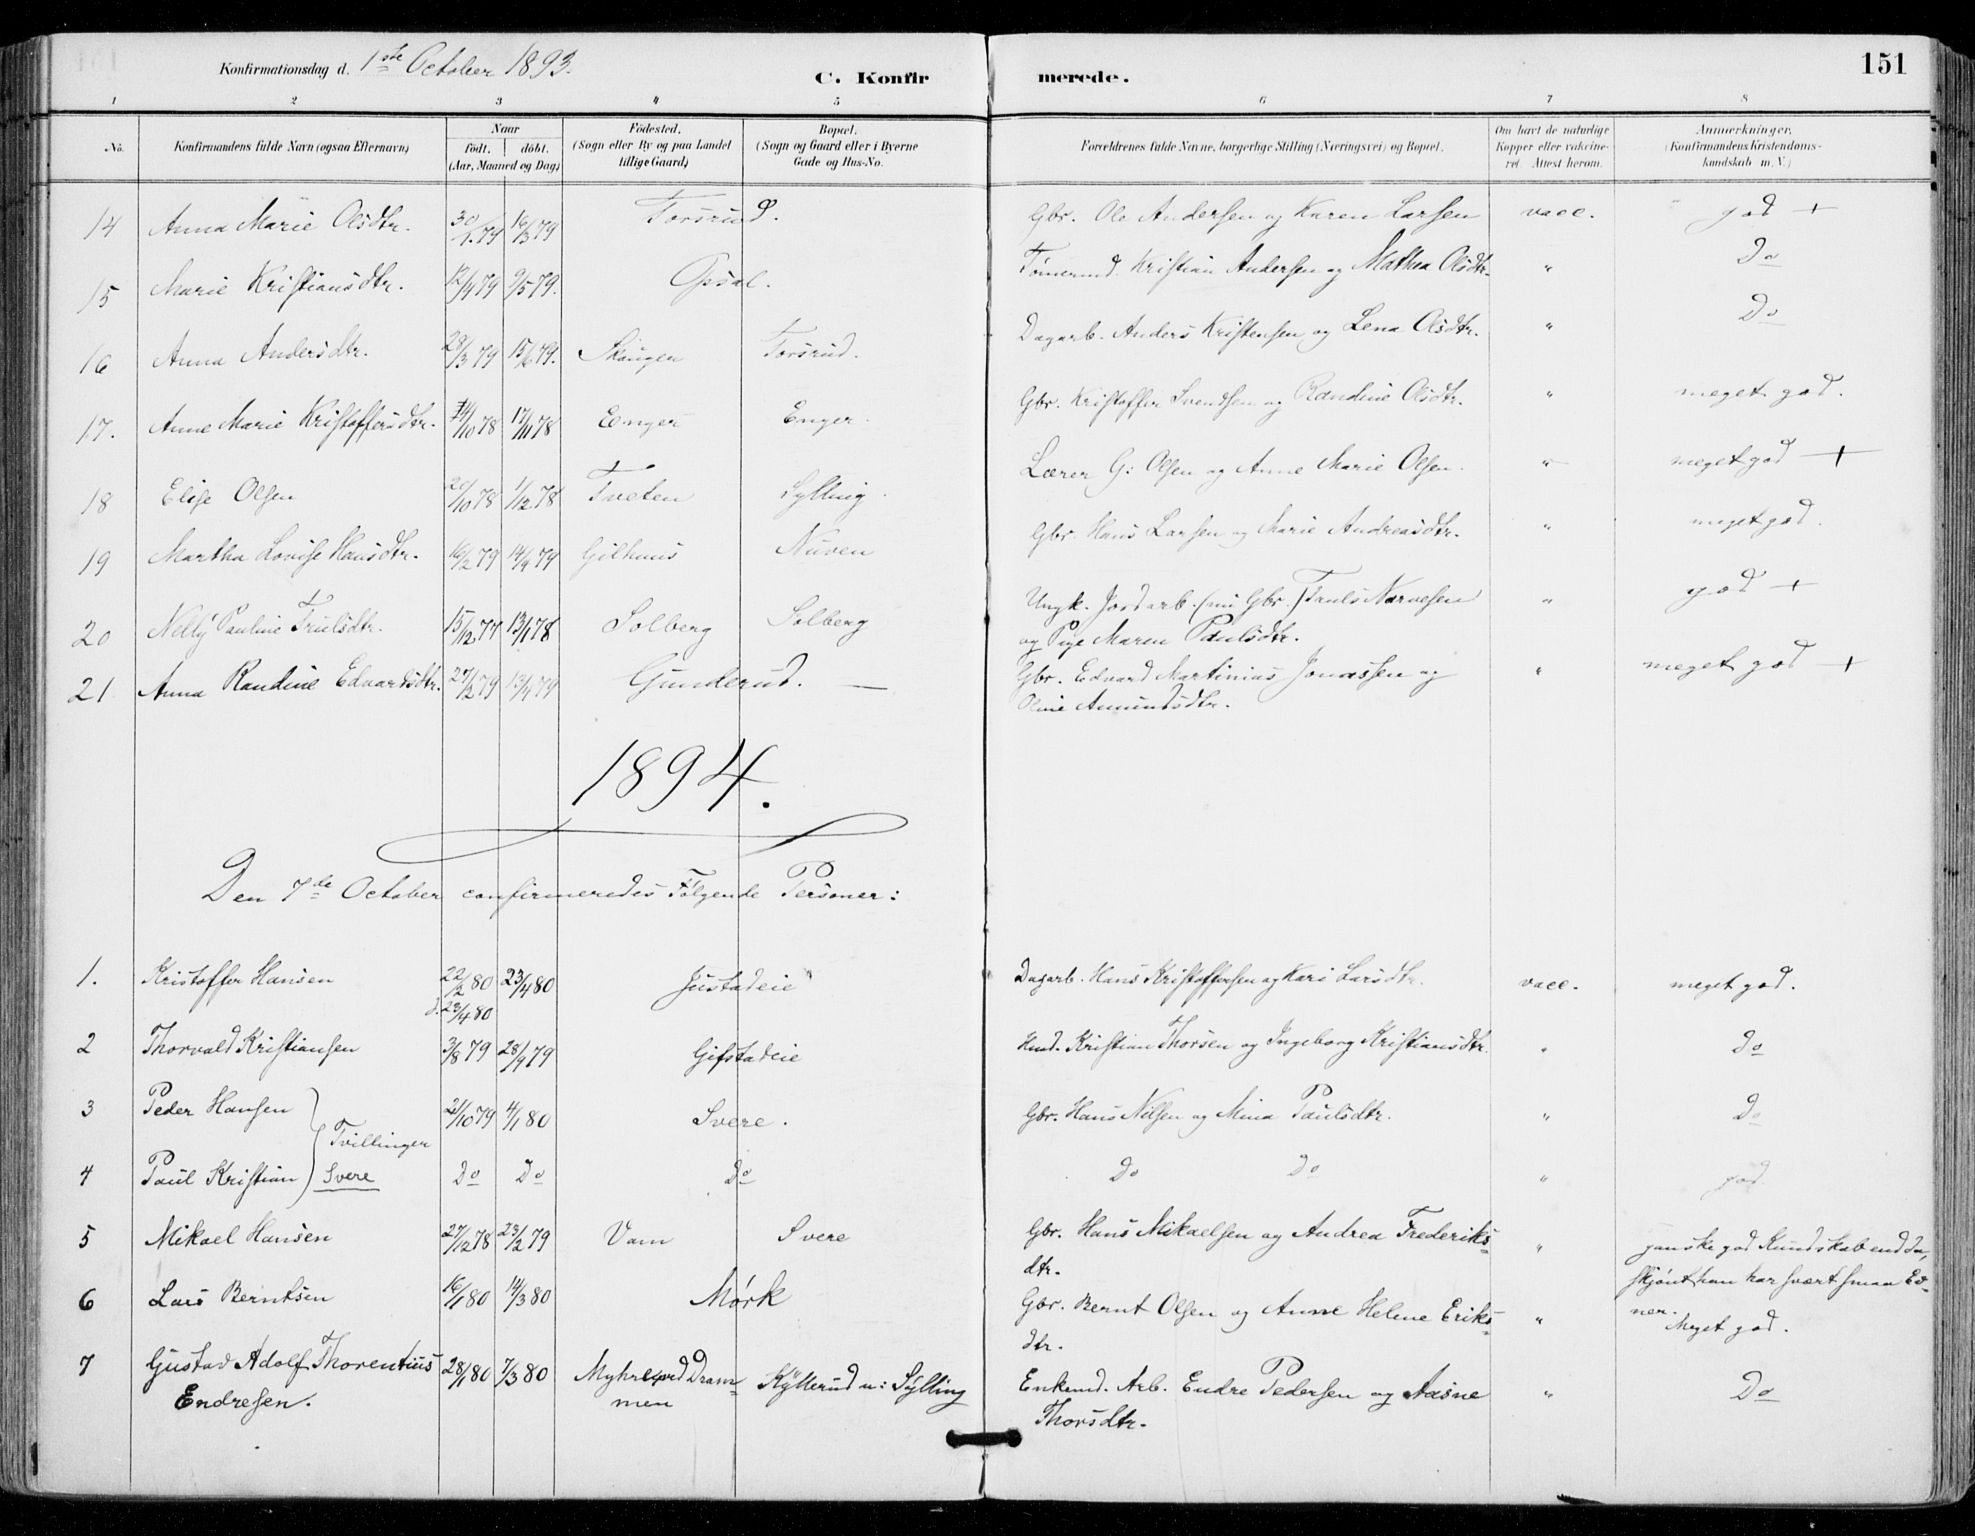 Konfirmationsdag d. 1ste October 1893.
C. Konfirmerede.
151
1 2 3 4 5 6 7 8
No. Konfirmandens fulde Navn (ogsaa Efternavn) Naar födt. döbt. (Aar, Maaned og Dag) Födested. (Sogn eller By og paa Landet tillige Gaard) Bopæl. (Sogn og Gaard eller i Byerne Gade og Hus-No. Forældrenes fulde Navne, borgerlige Stilling (Næringsvei) og Bopæl. Om havt de naturlige Kopper eller vakcineret. Attest herom. Anmerkninger, (Konfirmandens Kristendomskundskab m. V.)
14 Anna Marie Olsdtr. 30/1.79 16/3 79 Torsrud. Gbr. Ole Andersen og Karen Larsen vacc. god +
15 Marie Kristiansdtr. 12/4 79 9/5 79. Opsal. Tømmermd. Kristian Andersen og Mathea Olsdtr. " Do
16 Anna Andersdtr. 28/3 79 15/6 79. Skaugen Torsrud. Dagarb. Anders Kristensen og Lena Olsdtr. " Do
17. Anne Marie Kristoffersdtr. 14/10 78 17/11 78 Enger Enger. Gbr. Kristoffer Svendsen og Randine Olsdtr. " meget god.
18 Elise Olsen 20/10 78 1/12 78 Tveten Sylling. Lærer G: Olsen og Anne Marie Olsen. " meget god +
19 Martha Lovise Hansdtr. 16/2 79 14/4 79 Gilhuus Nuven Gbr. Hans Larsen og Marie Andreasdtr. " meget god.
20 Nelly Pauline Trulsdtr. 15/12 77 13/1 78 Solberg Solberg Ungk. Jordarb. (nu Gbr.) Truls Narvesen " god +
og Pige Maren Paulsdtr.
21 Anna Randine Edvardsdtr. 27/2 79 13/4 79 Gunderud. — Gbr. Edvard Martinius Jonassen og " meget god +
Oline Amundsdtr.
1894.
Den 7de October confirmeredes Følgende Personer:
1. Kristoffer Hansen 22/2 80 23/4 80 Justadeie Dagarb. Hans Kristoffersen og Kari Larsdtr. vacc. meget god.
d. 23/4 80
2 Thorvald Kristiansen 3/8 79 28/9 79 Gifstadeie Hmd. Kristian Thorsen og Ingeborg Kristiansdtr. " Do
3 Peder Hansen 21/10 79 4/1 80 Svere. Gbr. Hans Nilsen og Mina Paulsdtr. " Do
Tvillinger
4 Paul Kristian Svere Do Do Do Do Do " god.
5 Mikael Hansen 27/12 78 23/2 79 Vam Svere Gbr. Hans Mikaelsen og Andrea Frederiks- " ganske god Kundskab endda
dtr. skjønt han har svært smaa Ev-
6 Lars Berntsen 16/1 80 14/3 80 Mørk Gbr. Bernt Olsen og Anne Helene Eriks- " ner.
dtr. Meget god.
7 Gustav Adolf Thorentius 28/1 80 7/3 80 Myhre ved Dram- Kytterud u: Sylling Enkemd. Arb. Endre Pedersen og Aasne " Do
Endresen. men Thorsdtr.